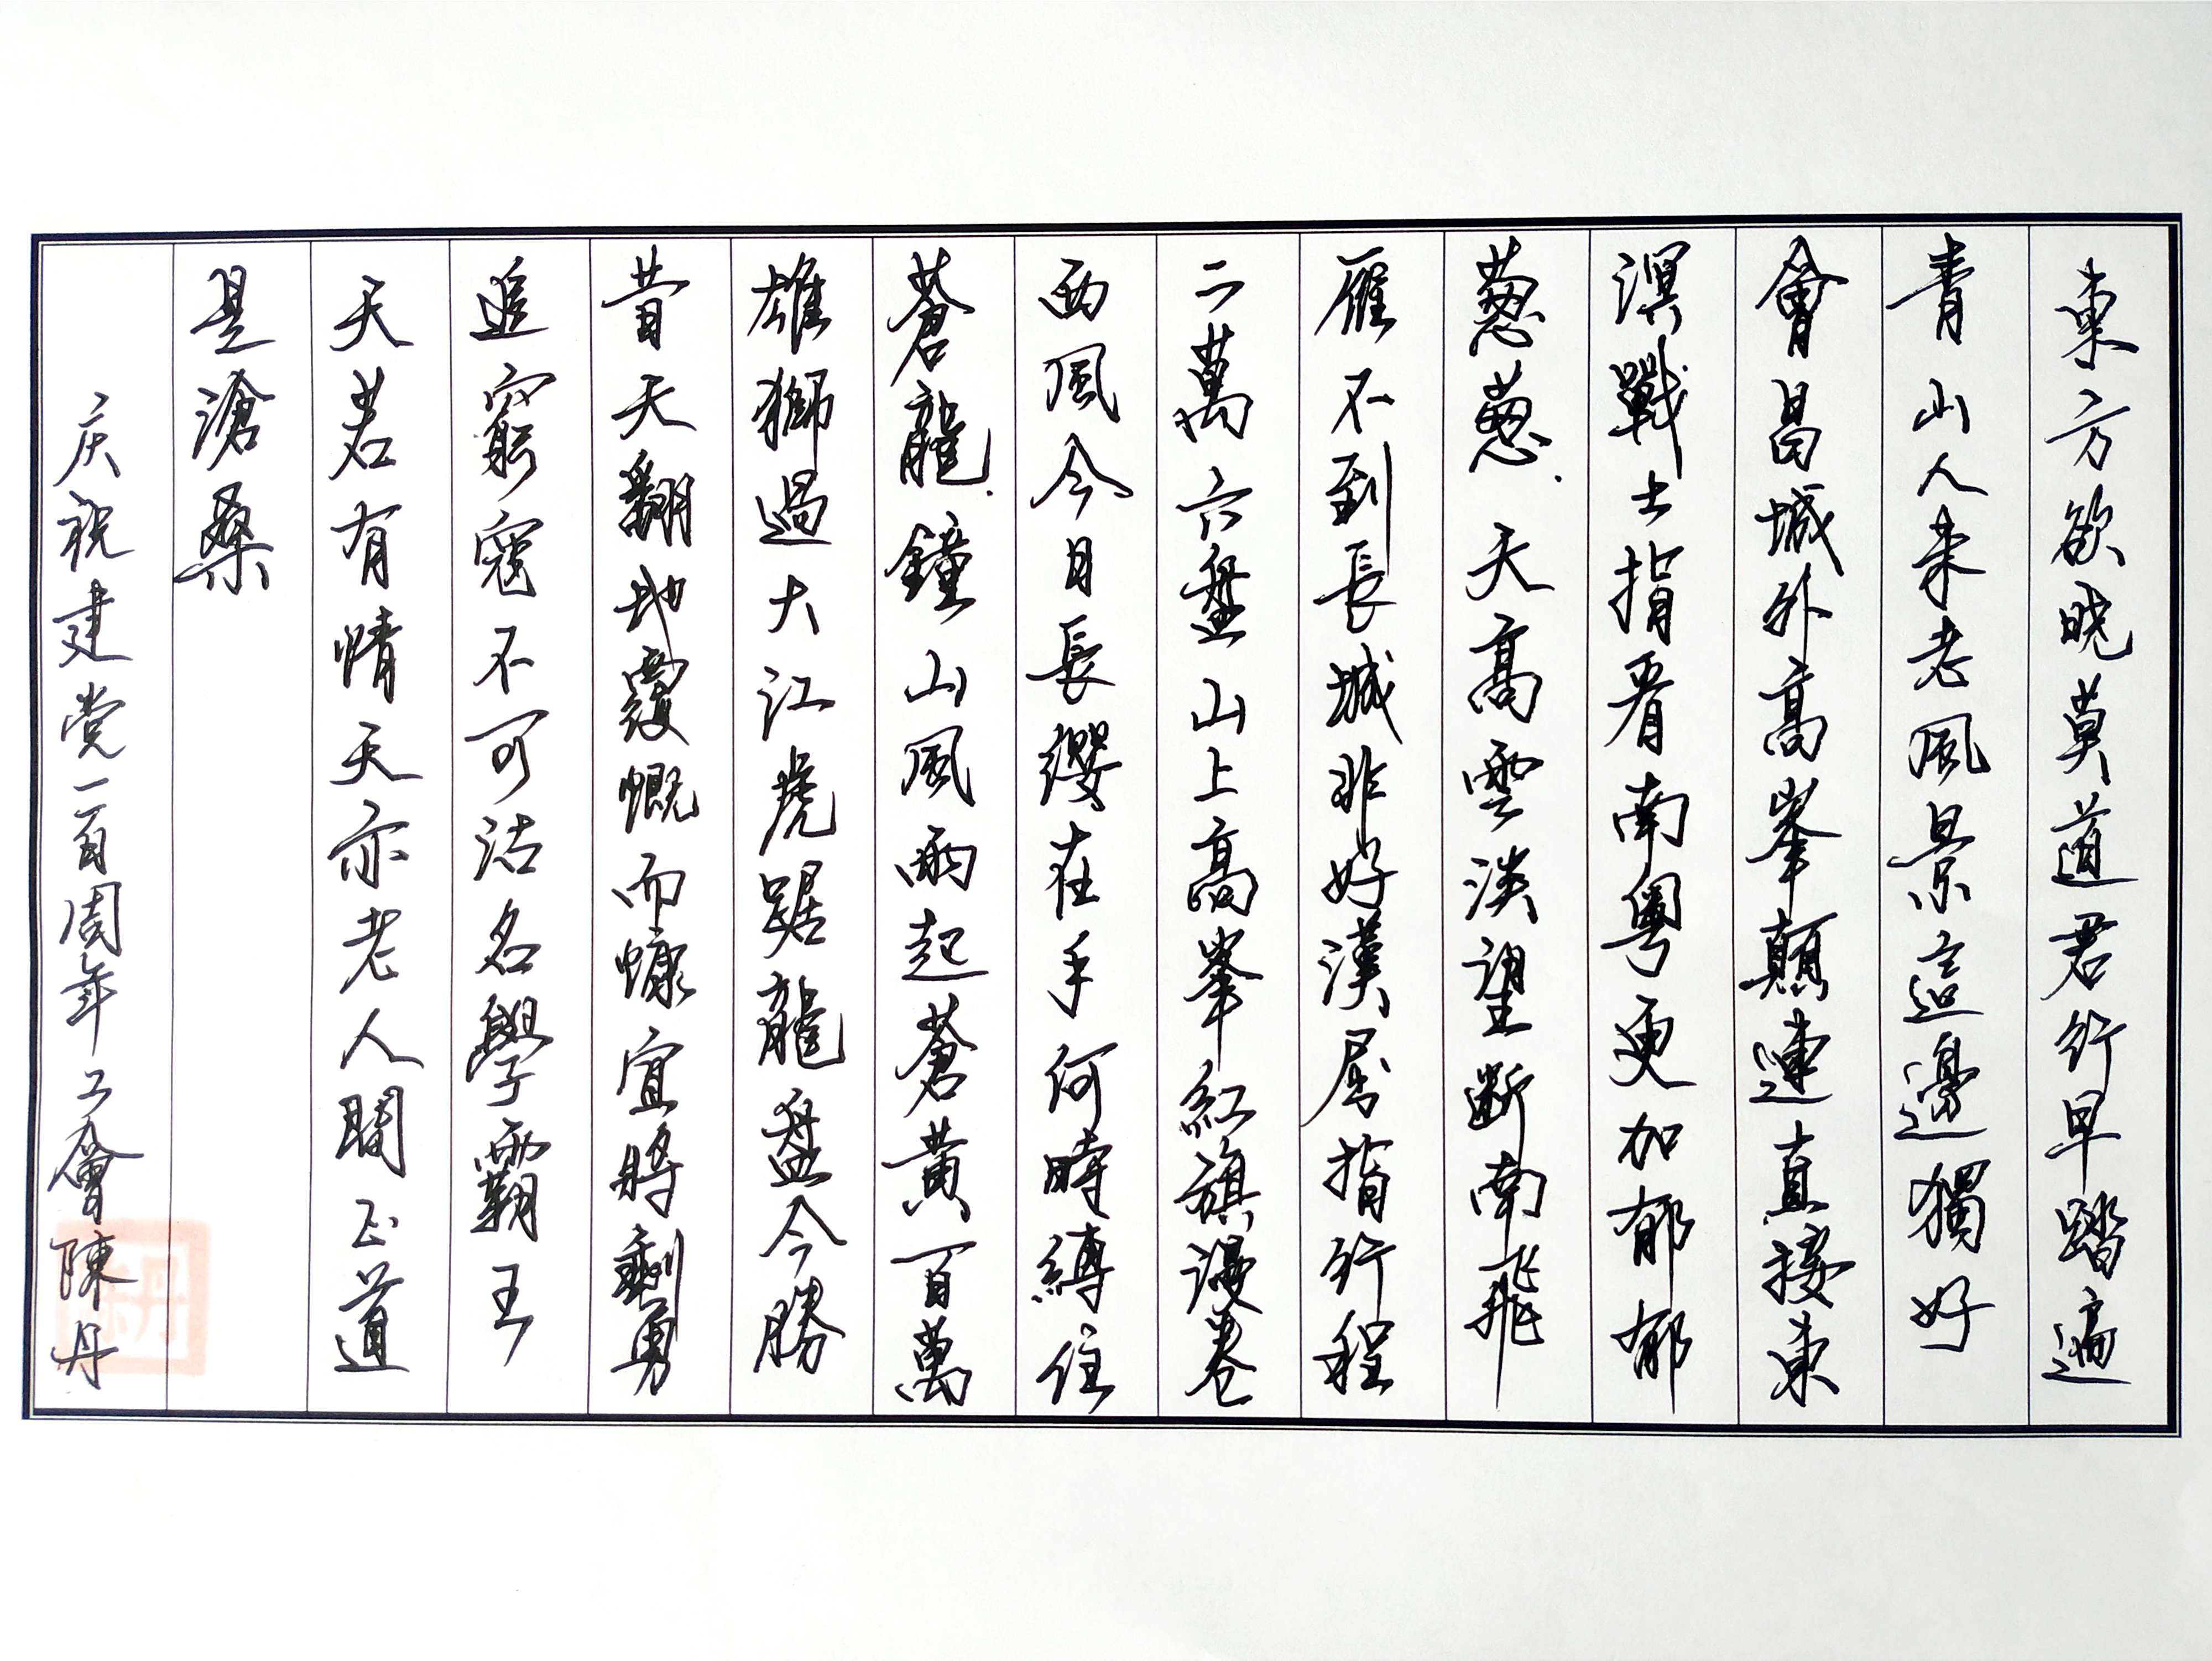 東方欲曉莫道君行早踏遍
青山人未老風景這邊獨好
會昌城外高峯顛連直接東
溟戰士指看南粵更加郁郁
蔥蔥.天高雲淡望斷南飛
雁不到長城非好漢屈指行程
二萬六盤山上高峯紅旗漫卷
西風今日長纓在手何時縛住
蒼龍.鐘山風雨起蒼黃百萬
雄獅過大江虎踞龍盤今勝
昔天翻地覆慨而慷宜將剩勇
追窮寇不可沽名學霸王
天若有情天亦老人間正道
是滄桑
庆祝建党一百周年工會陳丹